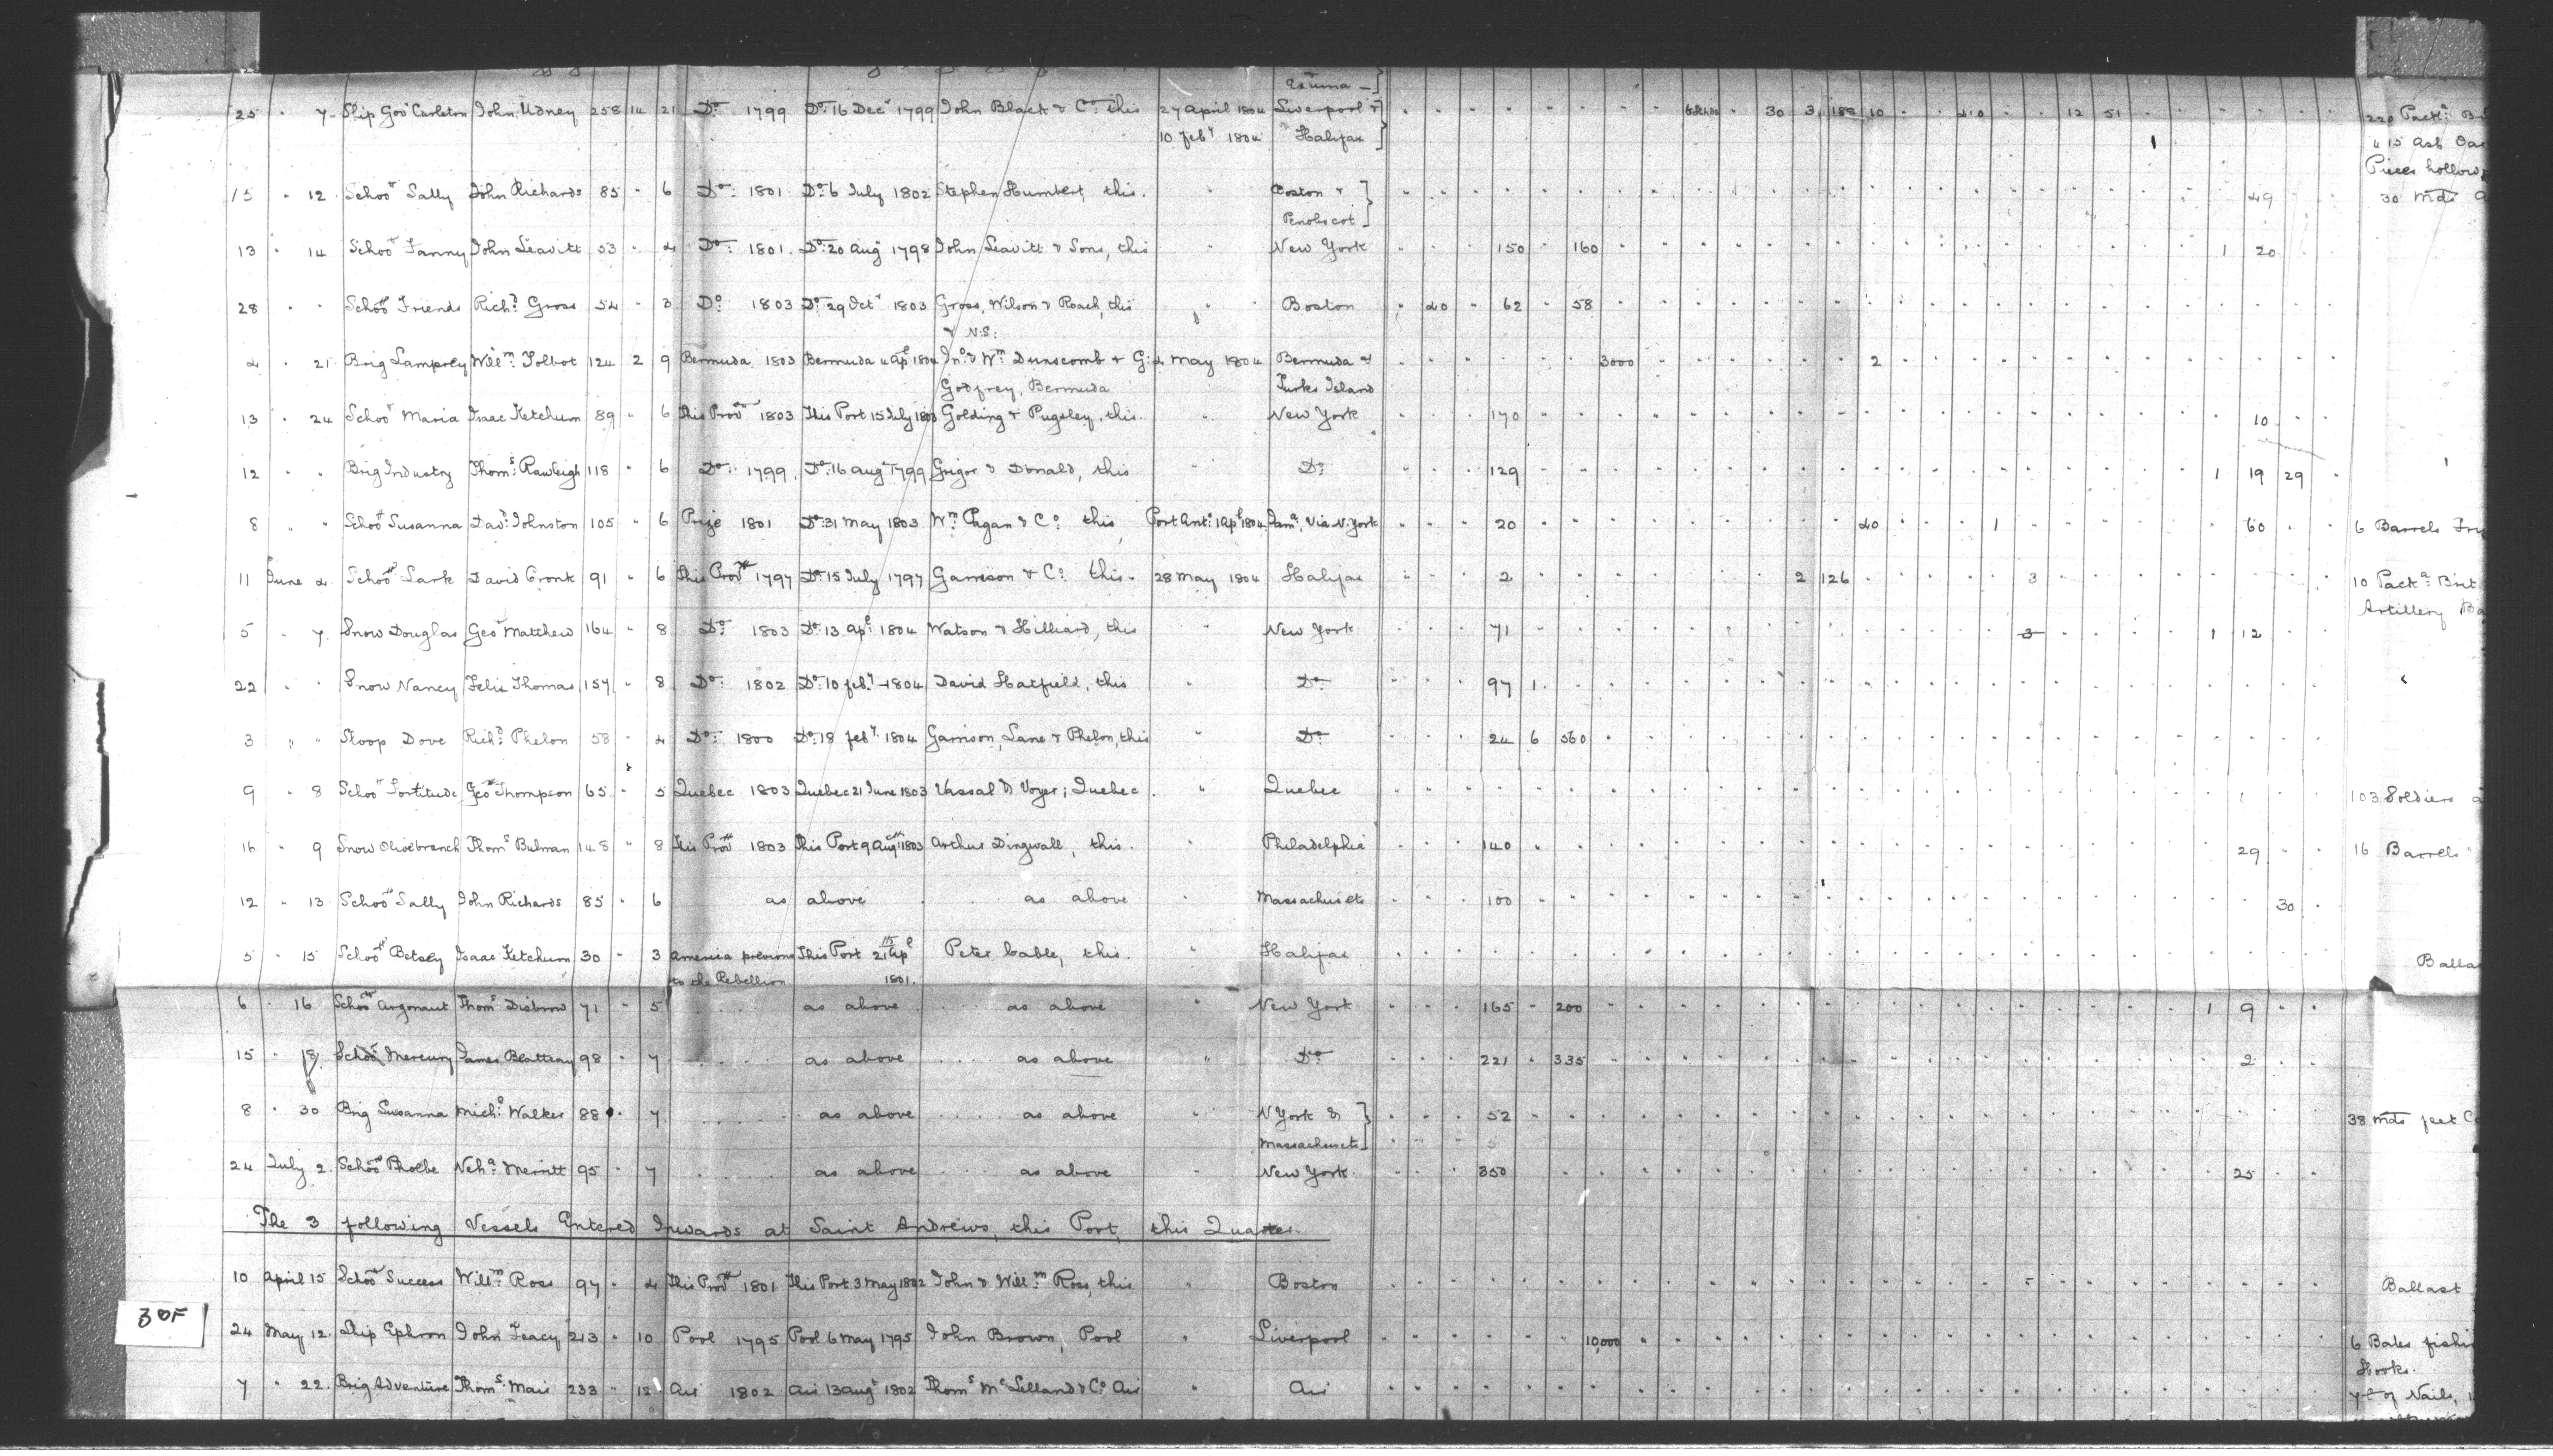 Esuma -
25 " 7 Ship Govr Carleton John Udney 258 14 21 Do 1799 Do 16 Decr 1799 John Black & Co this 27 April 1804 Liverpool & 30 3 188 10 40 12 51 220 Packs
10 Feby 1804 Halifax 1 15 Ash Oars
Pieces hollow
15 " 12 Schoor Sally John Richards 85 " 6 Do 1801 Do 6 July 1802 Stephen Humbert, this. " Boston & 49 30 Mds
Penobscot
13 " 14 Schoor Fanny John Leavitt 53 " 4 Do 1801. Do 20 Augt 1798 John Leavitt & Sons, this " New York 150 " 160 1 20
28 " " Schoor Friends Richd Gross 54 " 3 Do 1803 Do 29 Octr 1803 Gross, Wilson & Roach, this " Boston " 40 " 62 " 58
& N:S:
4 " 21 Brig Lamprey Willm Tolbot 124 2 9 Bermuda 1803 Bermuda 4 Apl 1804 Jno & Wm Dunscomb & G: 2 May 1804 Bermuda & 3000 2
Godfrey, Bermuda Turks Island
13 " 24 Schoor Maria Isaac Ketchum 89 " 6 This Provce 1803 This Port 15 July 1803 Golding & Pugsley, this. " New York 170 10
12 " " Brig Industry Thoms Rawleigh 118 " 6 Do 1799. Do 16 Augt 1799 Grigor & Donald, this " Do 129 1 19 29
8 " " Schoor Susanna Davd Johnston 105 " 6 Prize 1801 Do 31 May 1803 Wm Pagan & Co this Port Anto 1 Apl 1804 Jama, Via N. York 20 40 1 60 6 Barrels
11 June 4 Schoor Lark David Cronk 91 " 6 This Provce 1797 Do 15 July 1797 Garrison & Co this. 28 May 1804 Halifax 2 2 126 3 10 Packs Brit
Artillery
5 " 7 Snow Douglas Geor Matthew 164 " 8 Do 1803 Do 13 Apl 1804 Watson & Hilliard, this " New York 71 3 1 12
22 " " Snow Nancy Felix Thomas 157 " 8 Do 1802 Do 10 Feby 1804 David Hatfield, this " Do 97 1
3 " " Sloop Dove Richd Phelon 58 " 4 Do 1800 Do 18 Feby 1804 Garrison, Lane & Phelon, this " Do 24 6 560
9 " 8 Schoor Fortitude Geo Thompson 65 " 5 Quebec 1803 Quebec 21 June 1803 Vassal & Voyer; Quebec " Quebec 103 Soldiers
16 " 9 Snow Olivebranch Thoms Bulman 148 " 8 This Provce 1803 This Port 9 Augt 1803 Arthur Dingwall, this. " Philadelphia 140 29 16 Barrels
12 " 13 Schoor Sally John Richards 85 " 6 as above as above " Massachusets 100 30
5 " 15 Schoor Betsey Isaac Ketchum 30 " 3 America previous This Port 21 Apl Peter Cable, this. " Halifax Balla
to the Rebellion 1801.
6 " 16 Schoor Argonaut Thoms Disbrow 71 " 5 as above as above " New York 165 " 200 1 9
15 " 18 Schoor Mercury James Beattay 98 " 7 as above as above " Do 221 " 335 2
8 " 30 Brig Susanna Michl Walker 88 " 7 as above as above " N York & 52 38 Mds feet
Massachusets
24 July 2. Schoor Phoebe Neha Merritt 95 " 7 as above as above New York. 350 25
The 3 following Vessels Entered Inwards at Saint Andrews, this Port, this Quarter.
10 April 15 Schoor Success Willm Ross 97 " 4 This Provce 1801 This Port 3 May 1802 John & Willm Ross, this " Boston Ballast
30F
24 May 12. Ship Ephron John Teacy 213 " 10 Pool 1795 Pool 6 May 1795 John Brown, Pool " Liverpool 10,000 6 Bales fishi
Hooks.
7 " 22. Brig Adventure Thoms Mair 233 " 12 Air 1802 Air 13 Augt 1802 Thoms McLelland & Co Air " Air of Nails,